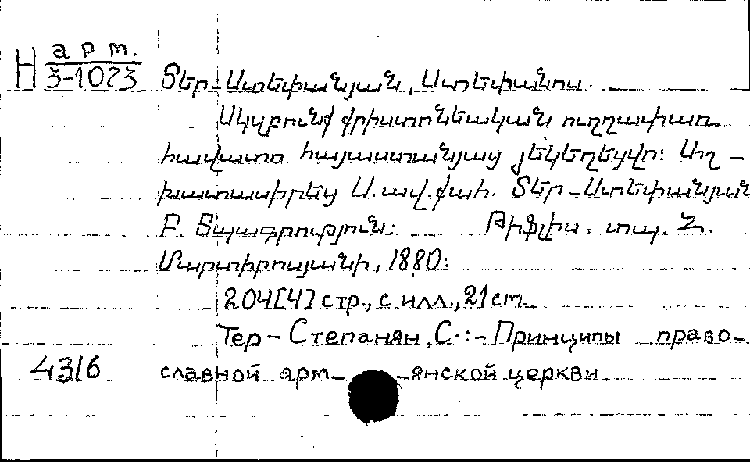 Н арт.
3-1023
Տեր-Ստեփանյան, Ստեփանոս
Սկզբունք քրիստոնեական ուղղափառ
հավատո հայաստանյայց եկեղեցվո: Աշ-
խատասիրեց Ս. ավ. քահ. Տեր-Ստեփանյան
Բ. Տպագրություն: Թիֆլիս. տպ. Հ.
Մարտիրոսյանի, 1880:
204[4] стр., с илл., 21 cm.
Тер-Степанян, С.:-Принципы право-
4316 славной арм- -янской церкви